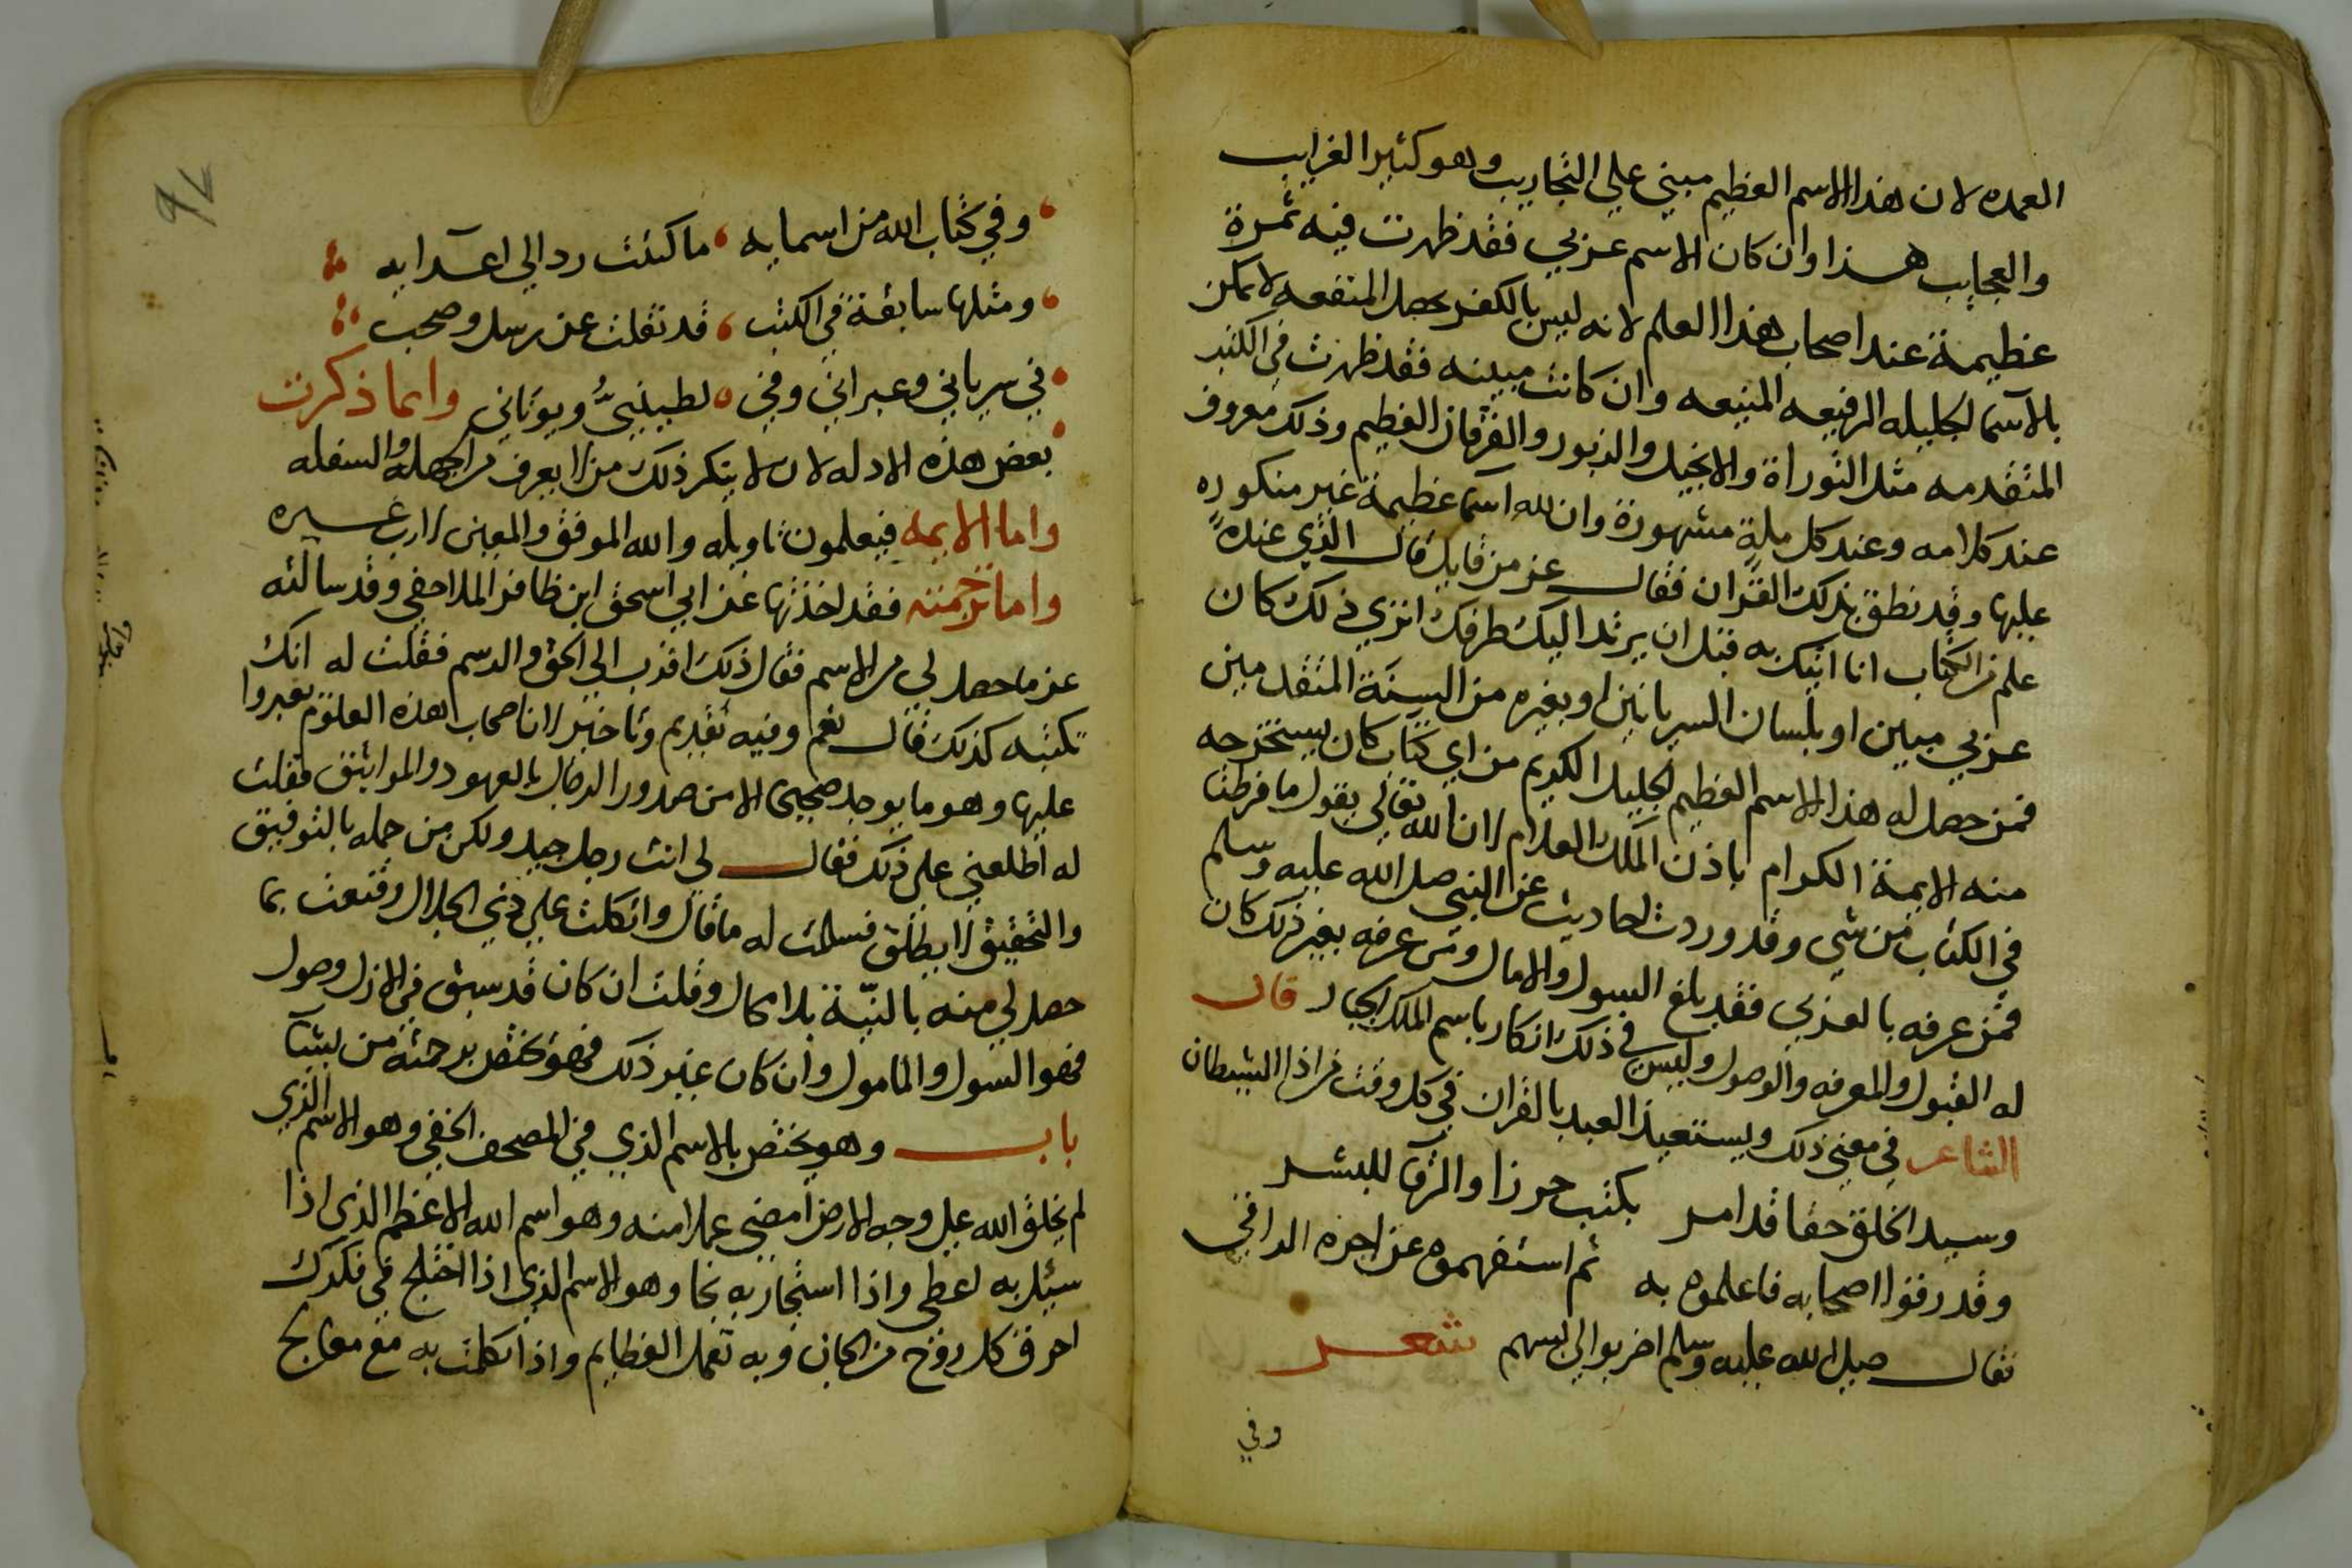 العمده لان هذا الاسم العظيم مبني علي التجاريب وهو كثير الغرايب
والعجايب هذا وان كان الاسم عربي فقد ظهرت فيه ثمرة
عظيمة عند اصحاب هذا العلم لانه ليس بالكفر يحصل المنفعه لا يمكن
بالاسما الجليله الرفيعه المنيعه وان كانت مبينه فقد ظهرت في الكتب
المتقدمه مثل التوراة والانجيل والزبور والفرقان العظيم وذلك معروف
عند كل امه وعند كل ملة مشهورة وان لله اسما عظيمة غير منكوره
عليها وقد نطق بذلك القران فقال عز من قايل قال الذي عنده
علم من الكتاب انا اتيك به قبل ان يرتد اليك طرفك اتري ذلك كان
عربي مبين او بلسان السريانين او بغيره من السنة المتقدمين
فمن حصل له هذا الاسم العظيم الجليل الكريم من اي كتاب كان يستخرجه
منه الايمة الكرام باذن الملك العلام لان الله تعالي يقول ما فرطنا
في الكتاب من شي وقد وردت احاديث عن النبي صلي الله عليه وسلم
فمن عرفه بالعربي فقد بلغ السول والامال ومن عرفه بغير ذلك كان
له القبول والمعرفه والوصول وليس في ذلك انكار باسم الملك الجبار قال
الشاعر في معني ذلك ويستعيذ العبد بالقران في كل وقت من اذا الشيطان
وسيد الخلق حقا قد امر بكتب حرزا والرقا للبشر
وقد رقوا اصحابه فاعلموه به ثم استفهموه عن اجره الراقي
فقال صلي الله عليه وسلم اضربوا لي بسهم شعر
وفي
وفي كتاب الله من اسمايه ما كتبت رد الي اعدايه
ومثلها سابقة في الكتب قد نقلت عن رسل وصحب
في سرياني وعبراني وفي لطيبني ويوناني وانما ذكرت
بعض هذه الادله لان لا ينكر ذلك من لا يعرف من الجهله والسفله
واما الايمه فيعلمون تاويله والله الموفق والمعين لا رب غيره
واما ترجمته فقد اخذتها عن ابي اسحق ابن ظافر الملاحفي وقد سالته
عن ما حصل لي من الاسم فقال ذلك اقرب الي الحق والرسم فقلت له انك
تكتبه كذلك قال نعم وفيه تقديم وتاخير لان اصحاب هذه العلوم يغيروا
عليها وهو ما يوجد صحيحا الا من صدور الرجال بالعهود والمواثيق فقلت
له اطلعني علي ذلك فقال لي انت رجل جيد ولكن من حمله بالتوفيق
والتحقيق لا ينطلق فسلمت له ما قال واتكلت علي ذي الجلال وقنعت بما
حصل لي منه بالنية بلا محال وقلت ان كان قد سبق في الازل وصول
فهو السول والمامول وان كان غير ذلك فهو يختص برحمته من يشا
باب وهو يختص بالاسم الذي في المصحف الخفي وهو الاسم الذي
لم يخلق الله علي وجه الارض امضي عملا منه وهو اسم الله الاعظم الذي اذا
سيل به اعطي واذا استجار به نجا وهو الاسم الذي اذا اختلج في فكرك
احرق كل روح من الجان وبه تعمل العظايم واذا تكلمت به مع معالج